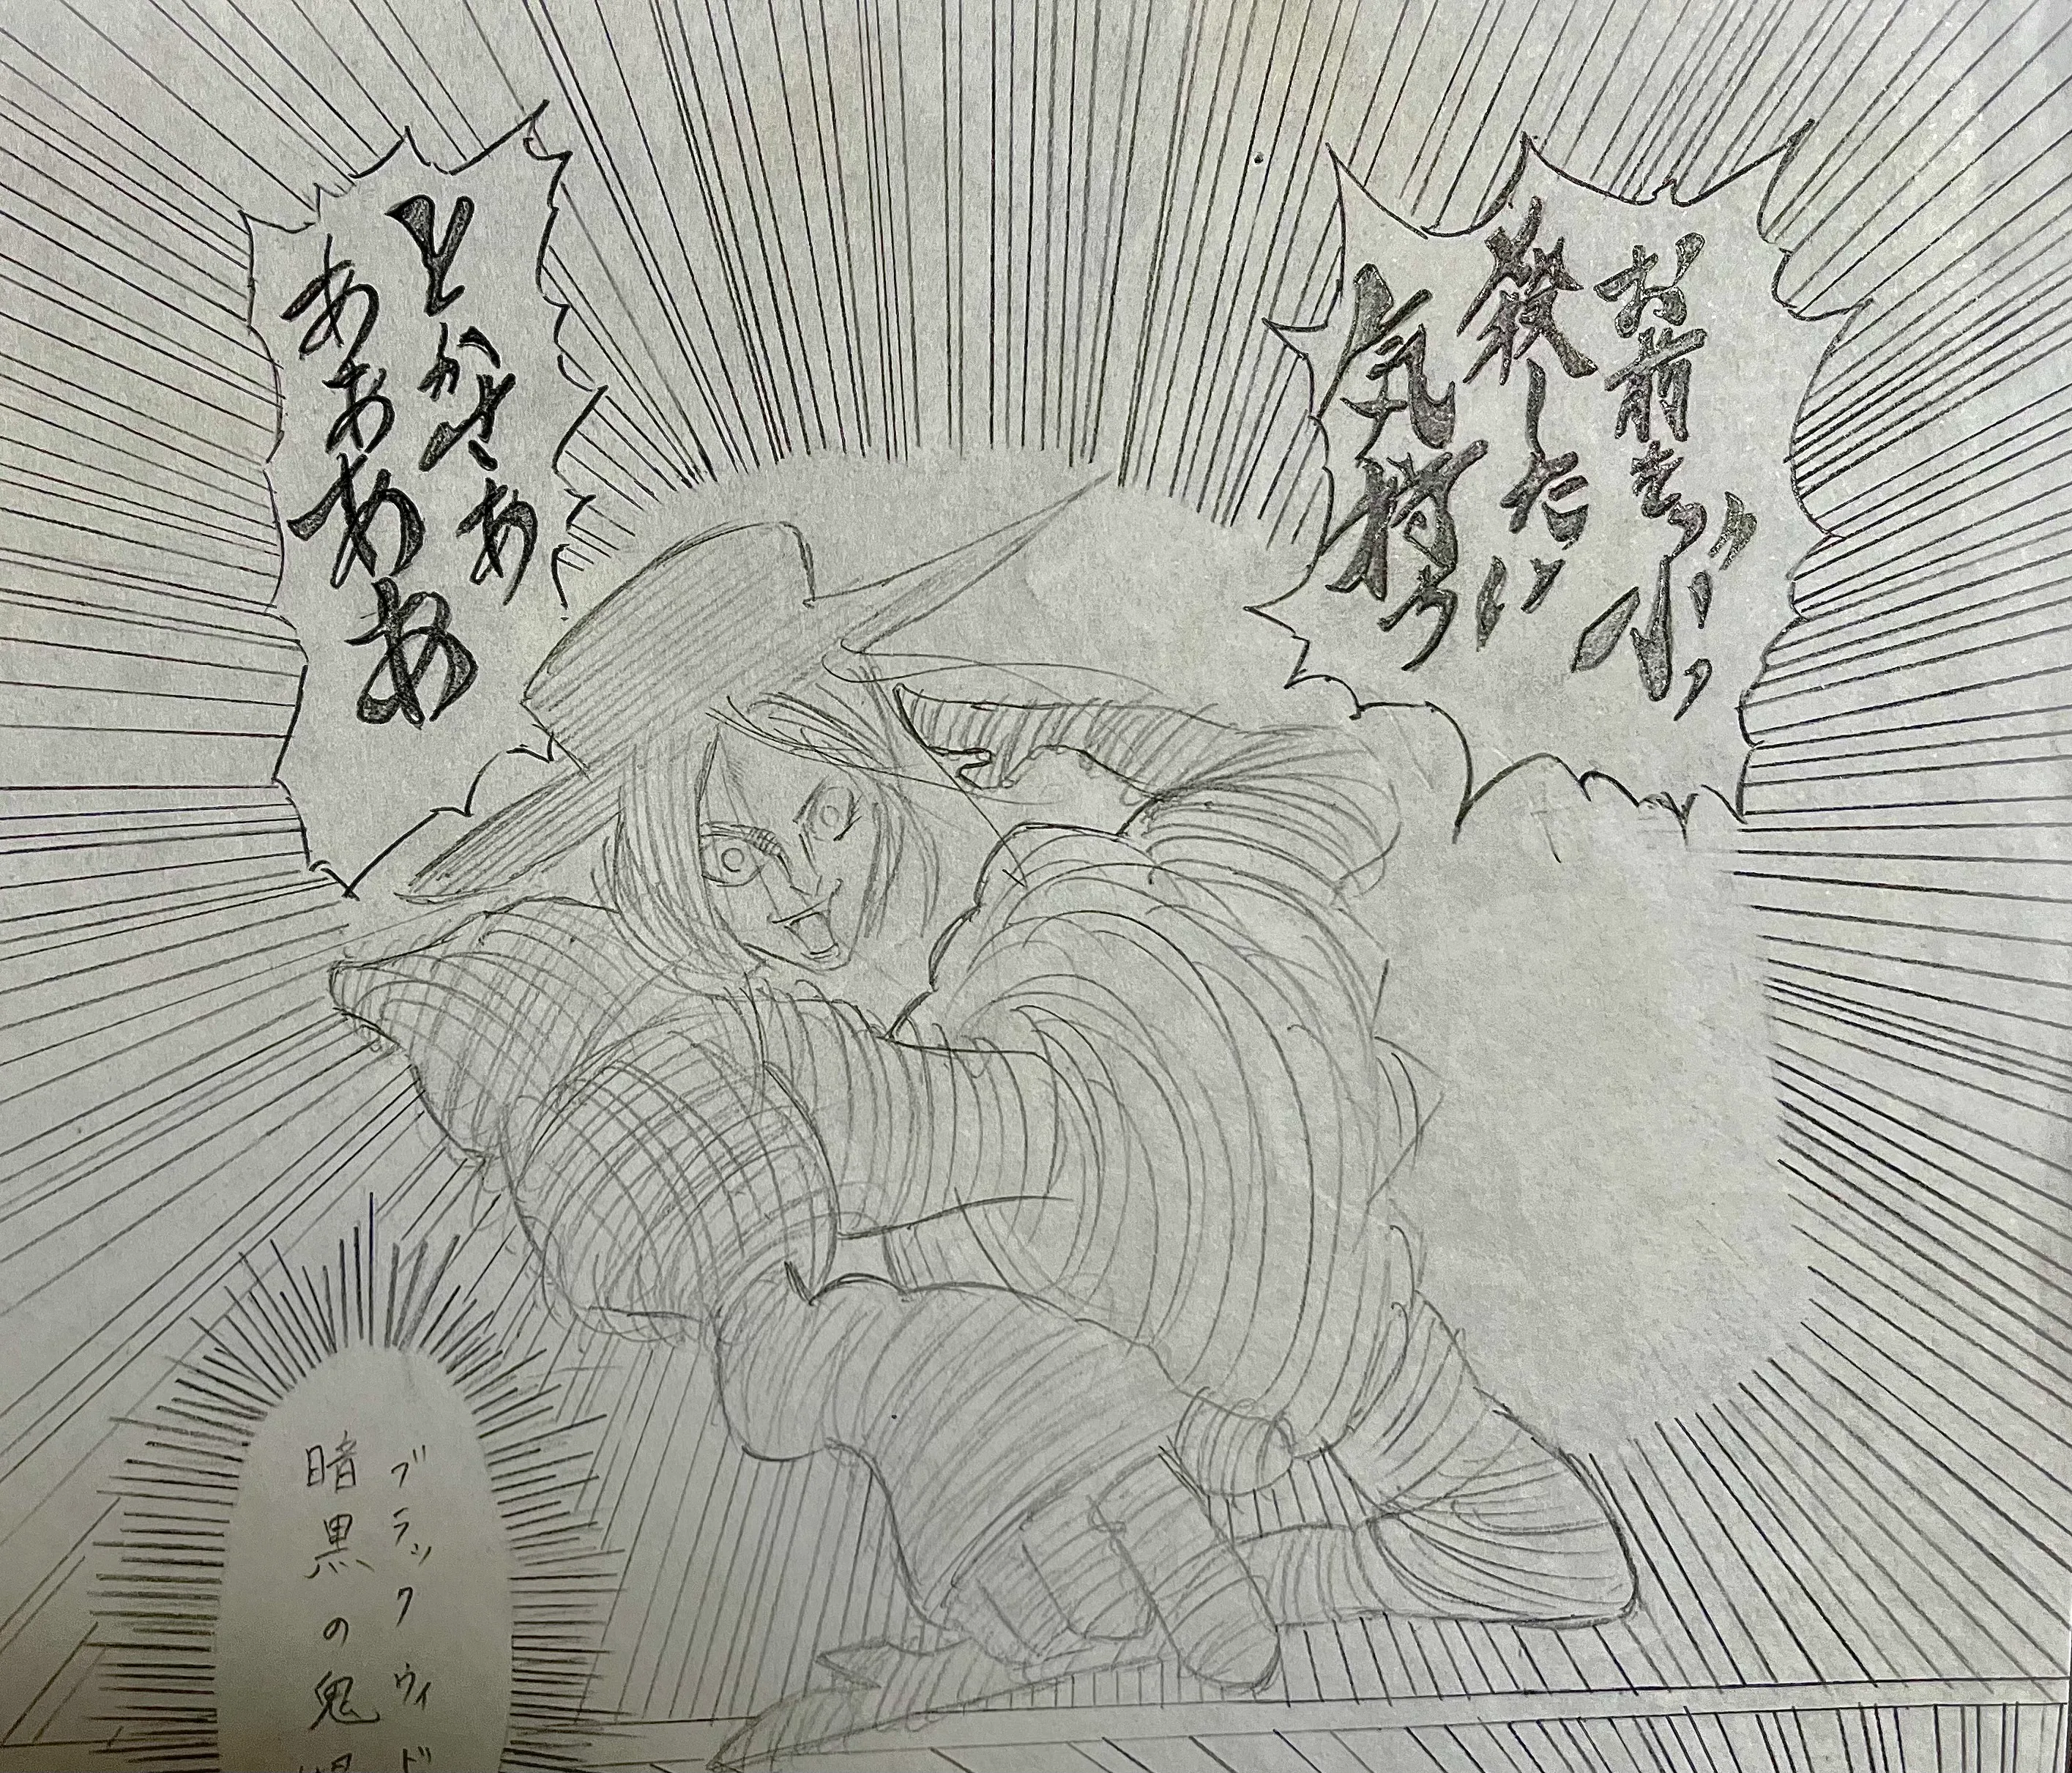 お前を
殺したい
気持ち
とかさあ
ああああ
ブラックウィド
暗黒の鬼